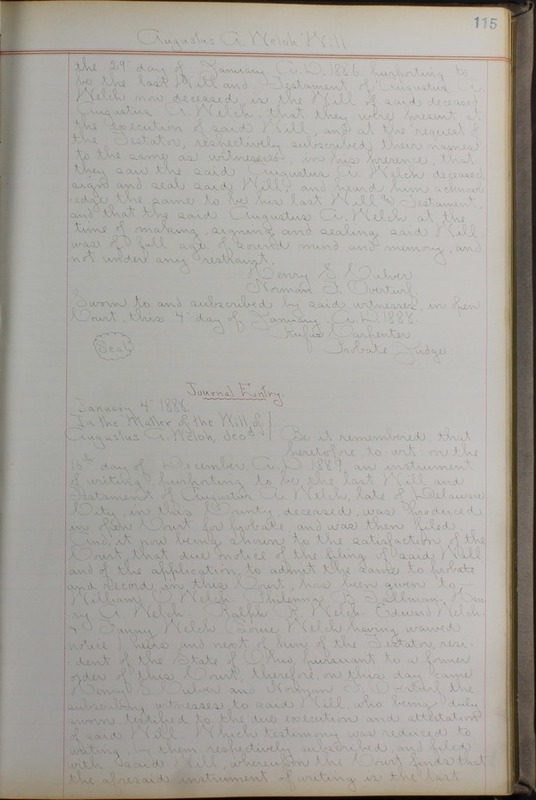 115
Augustus A. Welch Will
the 29" day of January A.D. 1886, purporting to
be the last Will and Testament of Augustus A.
Welch now deceased is the Will of said deceased
Augustus A. Welch. that they were present at
the execution of said Will, and at the request of
the Testator, respectively subscribed their names
to the same as witnesses, in his presence, that
they saw the said Augustus A. Welch deceased,
sign and seal said Will, and heard him acknowl-
edge the same to be his last Will and Testament,
and that the said Augustus A. Welch at the
time of making, signing and sealing said Will
was of full age of sound mind and memory, and
not under any restraint.
Henry S. Culver
Norman F. Overturf
Sworn to and subscribed by said witnesses, in open
Court, this 4" day of January A.D. 1888.
Rufus Carpenter
Probate Judge
Seal
Journal Entry.
January 4" 1888.
In the Matter of the Will of
Augustus A. Welch, decd
Be it remembered that
heretofore to-wit on the
day of December A.D. 1887, an instrument
of writing purporting to be the last Will and
Testament of Augustus A. Welch, late of Delaware
City, in this County, deceased, was produced
in open Court for probate and was then filed.
And it now being shown to the satisfaction of the
Court, that due notice of the filing of said Will
and of the application to admit the same to probate
and record in this Court, has been given to
William Welch, B. Hen-
ry A. Welch, Ralph Welch, Edward Welch
& Fanny Welch Welch having waived
notice) heirs and next of kin of the Testator, resi-
dent of the State of Ohio, pursuant to a former
order of this Court, therefore on this day came
Henry S. Culver and Norman F. Overturf the
subscribing witnesses to said Will, who being duly
sworn testified to the due execution and attestation
of said Will. Which testimony was reduced to
writing, by them respectively subscribed, and filed
with said Will, whereupon the Court finds that
the aforesaid instrument of writing is the last